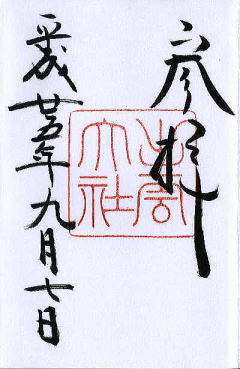 参拝
出雲大社
平成廿五年九月七日